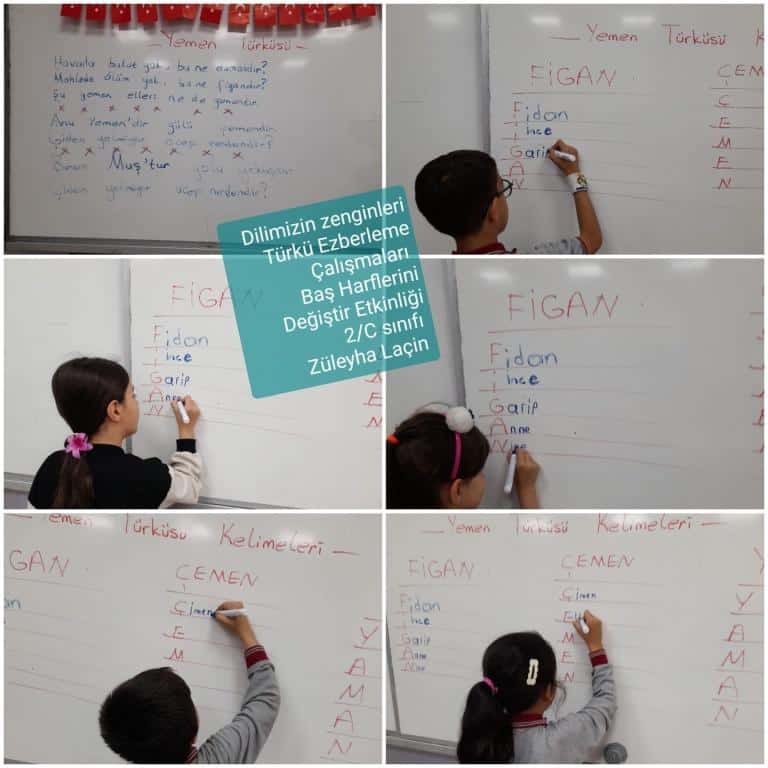 — Yemen Türküsü —
Havada bulut yok, bu ne dumandır?
Mahlede ölüm yok, bu ne figandır?
Şu yemen elleri ne de yamandır.
x x x x x x x
Anu Yemen'dir gülü çemendir
Giden gelmiyor acep nedendir?
x x x x x x
Burası Muş'tur yolu yokuştur
Giden gelmiyor acep nedendir?
— Yemen Türküsü K
FİGAN
Fidan
İnce
Gari
A
N
ÇEM
Ç
E
M
E
N
Dilimizin zenginleri
Türkü Ezberleme
Çalışmaları
Baş Harflerini
Değiştir Etkinliği
2/C sınıfı
Züleyha Laçin
FİGAN
Fidan
İnce
Garip
Anne
N
E
N
FİGAN
Fidan
İnce
Garip
Anne
Nine
Yemen Türküsü Kelimeleri —
GAN
an
ÇEMEN
Çimen
E
M
Y
A
M
A
N
— Yemen Türküsü Kelimeleri —
FİGAN
Fidan
İnce
Garip
Anne
Nine
ÇEMEN
Çimen
El
M
E
N
Y
Y
A
M
A
N